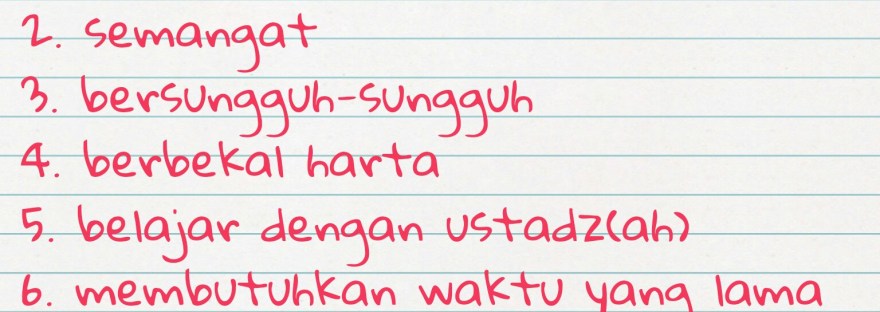 2. semangat
3. bersungguh-sungguh
4. berbekal harta
5. belajar dengan ustadz(ah)
6. membutuhkan waktu yang lama